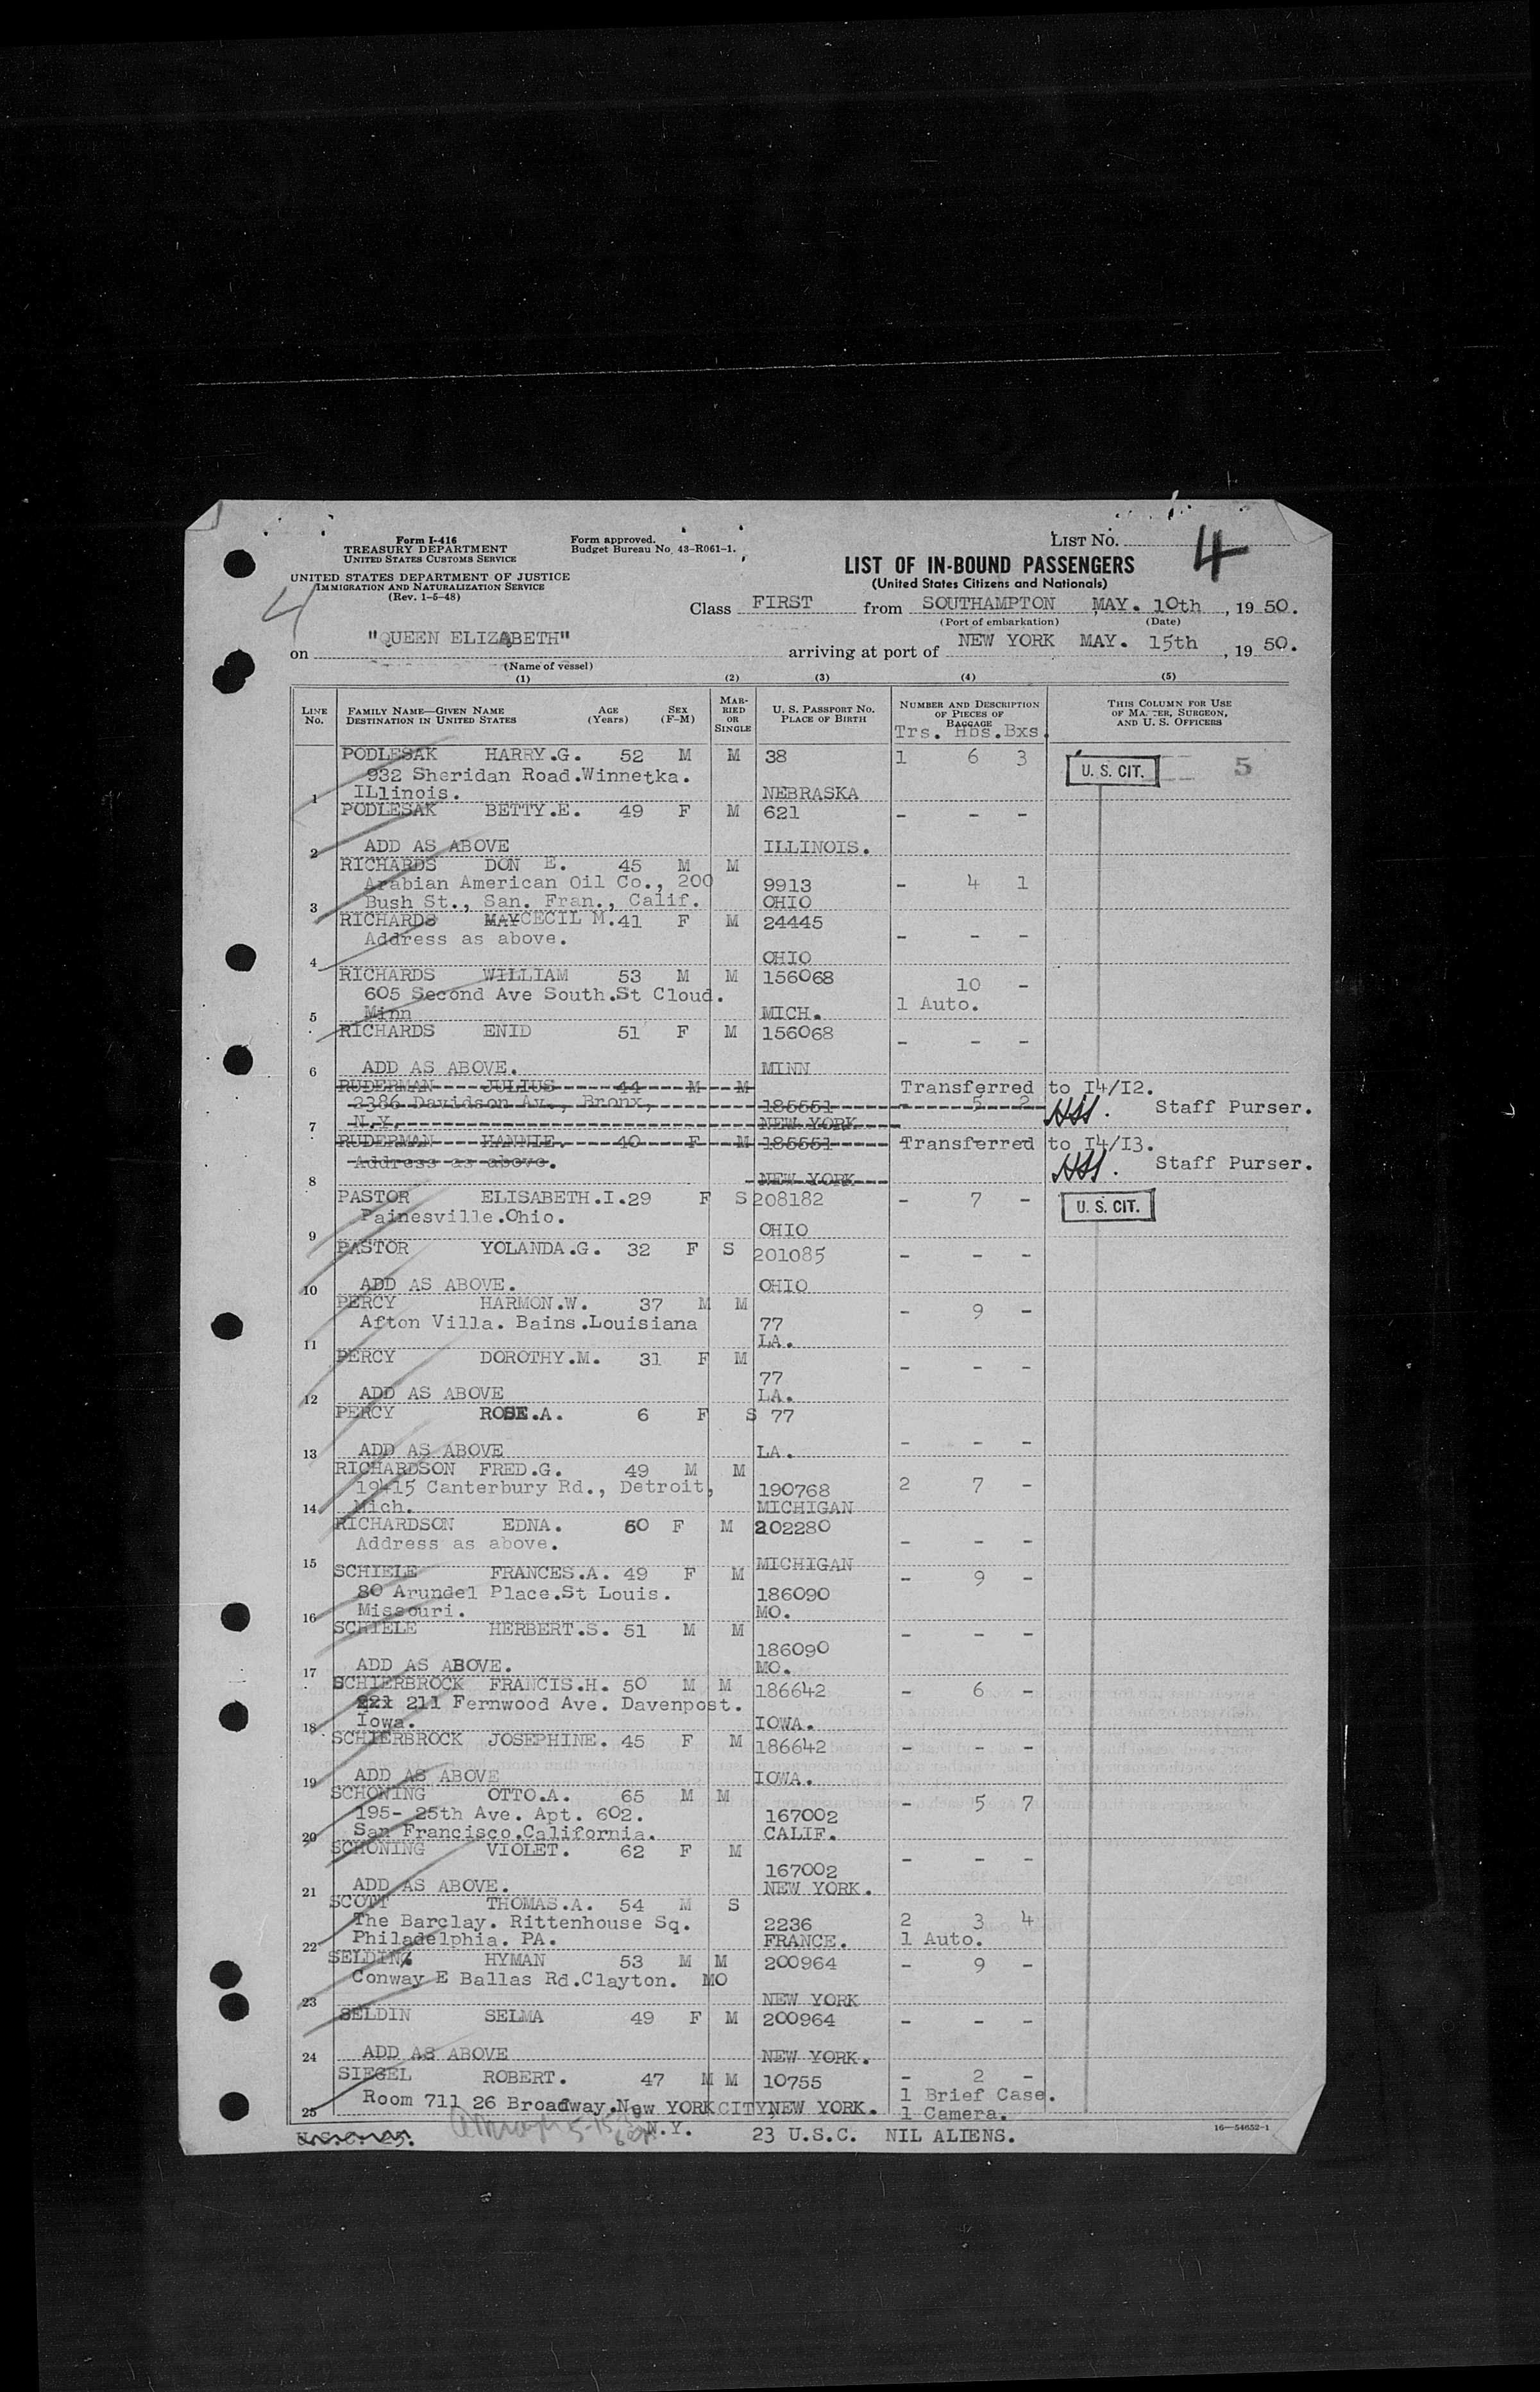 Form I-416
TREASURY DEPARTMENT
UNITED STATES CUSTOMS SERVICE
Form approved.
Budget Bureau No. 43-R061-1.
LIST NO. 4
UNITED STATES DEPARTMENT OF JUSTICE
IMMIGRATION AND NATURALIZATION SERVICE
(Rev. 1-5-48)
4
LIST OF IN-BOUND PASSENGERS
(United States Citizens and Nationals)
Class FIRST from SOUTHAMPTON MAY. 10th, 19 50.
(Port of embarkation) (Date)
on "QUEEN ELIZABETH" arriving at port of NEW YORK MAY. 15th, 19 50.
(Name of vessel)
(1) (2) (3) (4) (5)
LINE NO. FAMILY NAME—GIVEN NAME DESTINATION IN UNITED STATES AGE (YEARS) SEX (F-M) MARRIED OR SINGLE U. S. PASSPORT NO. PLACE OF BIRTH NUMBER AND DESCRIPTION OF PIECES OF BAGGAGE THIS COLUMN FOR USE OF MASTER, SURGEON, AND U. S. OFFICERS
Trs. Hbs. Bxs.
PODLESAK HARRY.G. 52 M M 38 1 6 3 U. S. CIT. 5
932 Sheridan Road.Winnetka.
1 ILlinois. NEBRASKA
PODLESAK BETTY.E. 49 F M 621 - - -
2 ADD AS ABOVE ILLINOIS.
RICHARDS DON E. 45 M M
Arabian American Oil Co., 200 9913 - 4 1
3 Bush St., San. Fran., Calif. OHIO
RICHARDS MAY CECIL M. 41 F M 24445
Address as above. - - -
4 OHIO
RICHARDS WILLIAM 53 M M 156068 10 -
605 Second Ave South.St Cloud. 1 Auto.
5 Minn MICH.
RICHARDS ENID 51 F M 156068 - - -
6 ADD AS ABOVE. MINN
RUDERMAN JULIUS 44 M M Transferred to I4/I2.
2386 Davidson Av., Bronx, 185551 - 5 2 HSS. Staff Purser.
7 N.Y. NEW YORK
RUDERMAN HANNIE. 40 F M 185551 Transferred to I4/I3.
Address as above. HSS. Staff Purser.
8 NEW YORK
PASTOR ELISABETH.I. 29 F S 208182 - 7 - U. S. CIT.
Painesville.Ohio.
9 OHIO
PASTOR YOLANDA.G. 32 F S 201085 - - -
10 ADD AS ABOVE. OHIO
PERCY HARMON.W. 37 M M - 9 -
Afton Villa. Bains.Louisiana 77
11 LA.
PERCY DOROTHY.M. 31 F M - - -
77
12 ADD AS ABOVE LA.
PERCY ROSE.A. 6 F S 77
13 ADD AS ABOVE LA. - - -
RICHARDSON FRED.G. 49 M M
19415 Canterbury Rd., Detroit, 190768 2 7 -
14 Mich. MICHIGAN
RICHARDSON EDNA. 60 F M 202280
Address as above. - - -
15 MICHIGAN
SCHIELE FRANCES.A. 49 F M - 9 -
80 Arundel Place.St Louis. 186090
16 Missouri. MO.
SCHIELE HERBERT.S. 51 M M - - -
186090
17 ADD AS ABOVE. MO.
SCHIERBROCK FRANCIS.H. 50 M M 186642 - 6 -
221 211 Fernwood Ave. Davenpost.
18 Iowa. IOWA.
SCHIERBROCK JOSEPHINE. 45 F M 186642 - - -
19 ADD AS ABOVE IOWA.
SCHONING OTTO.A. 65 M M - 5 7
195- 25th Ave. Apt. 602. 167002
20 San Francisco.California. CALIF.
SCHONING VIOLET. 62 F M - - -
167002
21 ADD AS ABOVE. NEW YORK.
SCOTT THOMAS.A. 54 M S
The Barclay. Rittenhouse Sq. 2236 2 3 4
22 Philadelphia. PA. FRANCE. 1 Auto.
SELDIN HYMAN 53 M M 200964 - 9 -
Conway E Ballas Rd.Clayton. MO
23 NEW YORK
SELDIN SELMA 49 F M 200964 - - -
24 ADD AS ABOVE NEW YORK.
SIEGEL ROBERT. 47 M M 10755 - 2 -
Room 711 26 Broadway.New YORK CITY NEW YORK. 1 Brief Case.
25 1 Camera.
N.Y. 23 U.S.C. NIL ALIENS. 16—54652-1